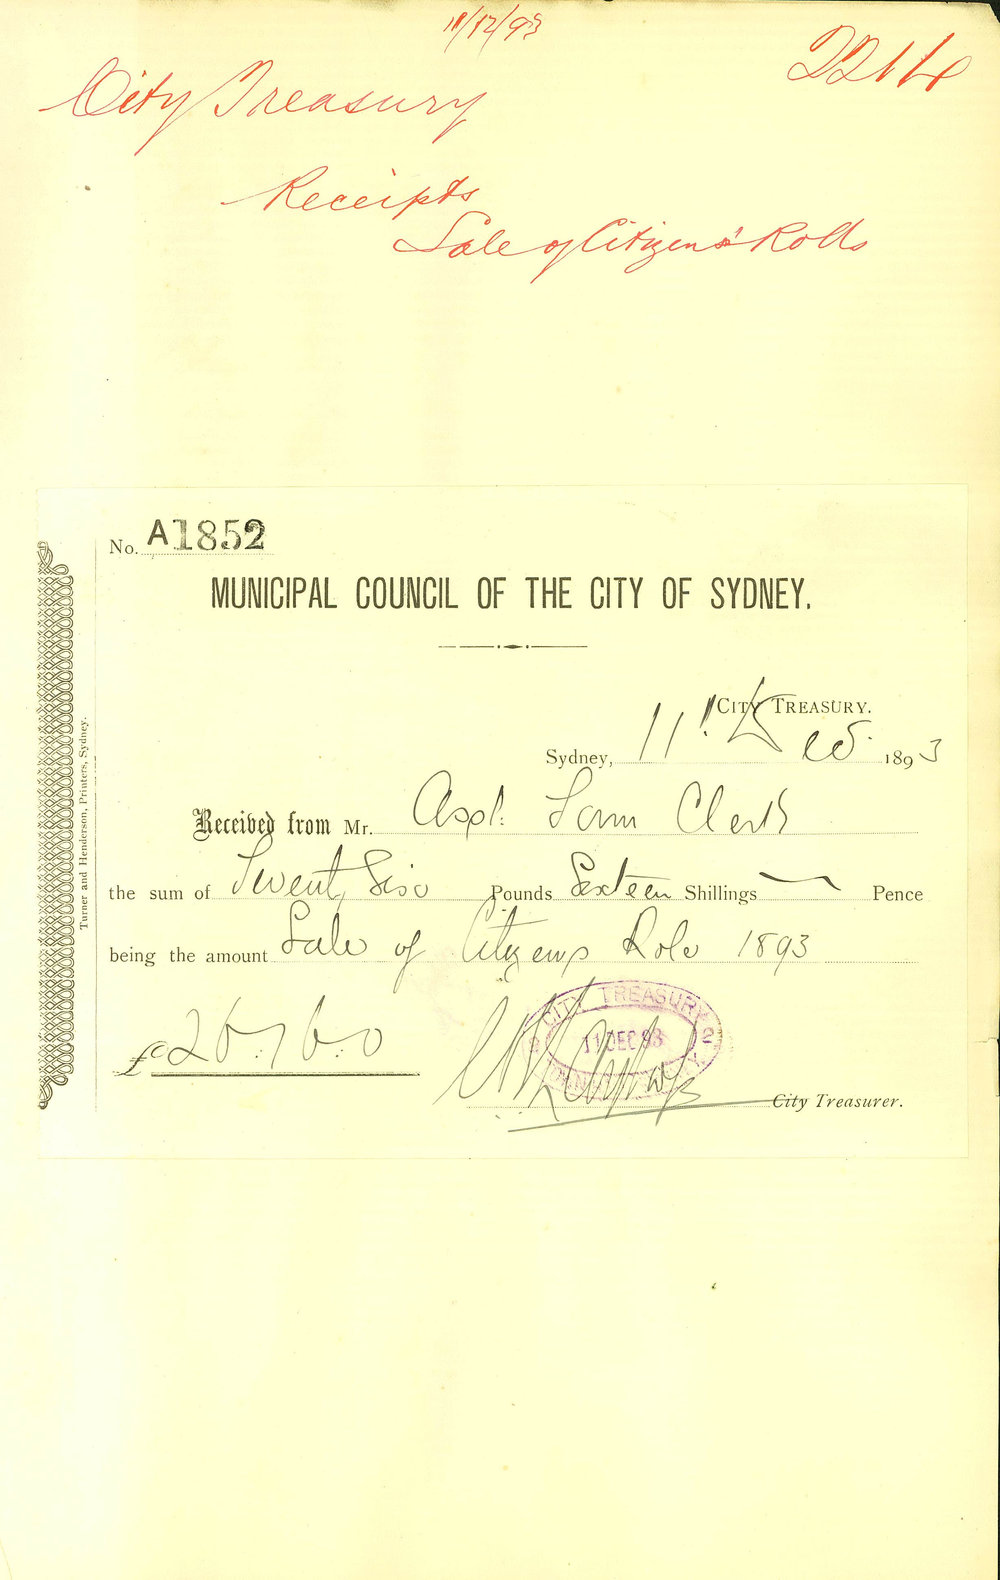 11/12/93
2214
City Treasury
Receipts
Sale of Citizens' Rolls
No. A1852
MUNICIPAL COUNCIL OF THE CITY OF SYDNEY.
CITY TREASURY.
Sydney, 11th Dec. 1893
Received from Mr. Asst. Town Clerk
the sum of Twenty Six Pounds Sixteen Shillings — Pence
being the amount Sale of Citizens Rolls 1893
£26.16.0
CITY TREASURY
2 11 DEC 93 2
City Treasurer.
Turner and Henderson, Printers, Sydney.